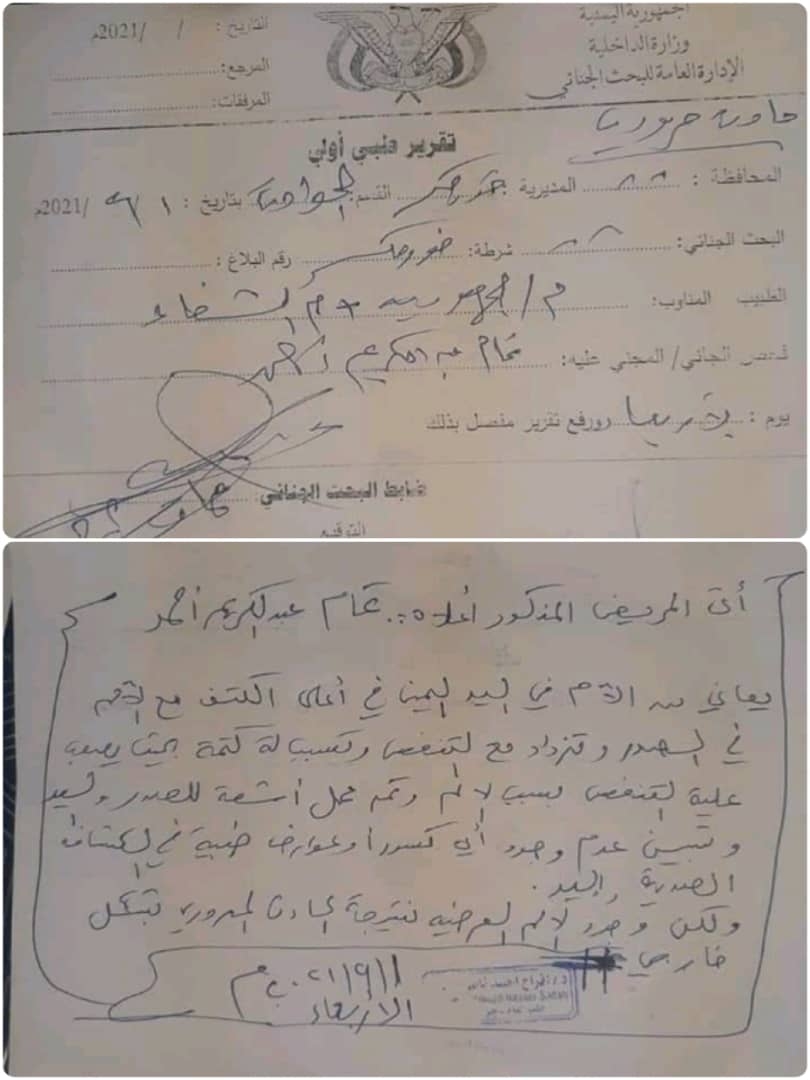 الجمهورية اليمنية
وزارة الداخلية
الإدارة العامة للبحث الجنائي
التاريخ : / /2021م
المرجع:
المرفقات:
حادث مروري
تقرير طبي أولي
المحافظة : المديرية القسم بتاريخ : ١/٩ /2021م
البحث الجنائي: شرطة: رقم البلاغ :
الطبيب المناوب: م/الجمهورية
شخص الجاني/ المجني عليه: تمام عبدالكريم احمد
يوم : ورفع تقرير مفصل بذلك
ضابط البحث الجنائي:
التوقيع
أن المريض المذكور أعلاه.. تمام عبدالكريم أحمد
يعاني من الآم في اليد اليمنى في أعلى الكتف مع الآم
في الصدر وتزداد مع التنفس وتسبب لة كتمة بحيث يصعب
علية التنفس بسبب الألم وتم عمل أشعة للصدر واليد
وتبين عدم وجود أي كسور أو عوارض طبية في
الصدرية واليد.
ولكن وجود الألم العرضيه نتيجة الحادث المروري بشكل
خارجي
٢٠٢١/٩/١م
الأربعاء